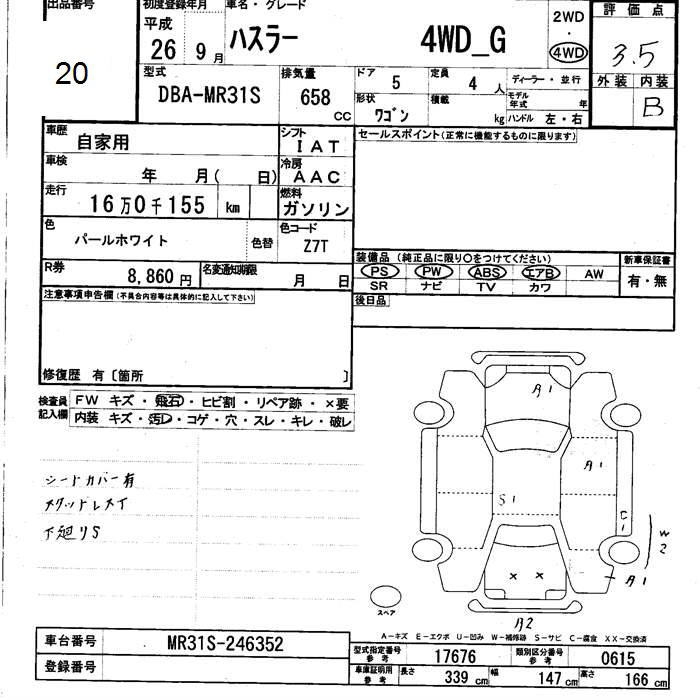 出品番号
20
初度登録年月
平成
26 9月
車名・グレード
ハスラー 4WD_G
2WD
・
4WD
評価点
3.5
外装 内装
B
型式
DBA-MR31S
排気量
658 cc
ドア 5
定員 4 人
形状 ワゴン
積載 kg
ディーラー・並行
モデル年式 年
ハンドル 左・右
車歴 自家用
シフト IAT
セールスポイント(正常に機能するものに限ります)
車検 年 月( 日)
冷房 AAC
走行 16万0千155 km
燃料 ガソリン
色 パールホワイト 色替
色コード Z7T
R券 8,860円
名変通知期限 月 日
装備品 (純正品に限り○をつけてください)
PS PW ABS エアB AW
SR ナビ TV カワ
新車保証書
有・無
後日品
注意事項申告欄(不具合内容等は具体的に記入して下さい)
修復歴 有〔箇所 〕
検査員記入欄
FW キズ・飛石・ヒビ割・リペア跡・×要
内装 キズ・汚レ・コゲ・穴・スレ・キレ・破レ
シートカバー有
スタッドレスイ
下廻りS
A1
A1
S1
C1
W2
A1
× ×
A2
スペア
A-キズ E-エクボ U-凹み W-補修跡 S-サビ C-腐食 XX-交換済
車台番号 MR31S-246352
登録番号
型式指定番号参考 17676
類別区分番号参考 0615
車庫証明用参考 長さ 339cm 幅 147cm 高さ 166cm